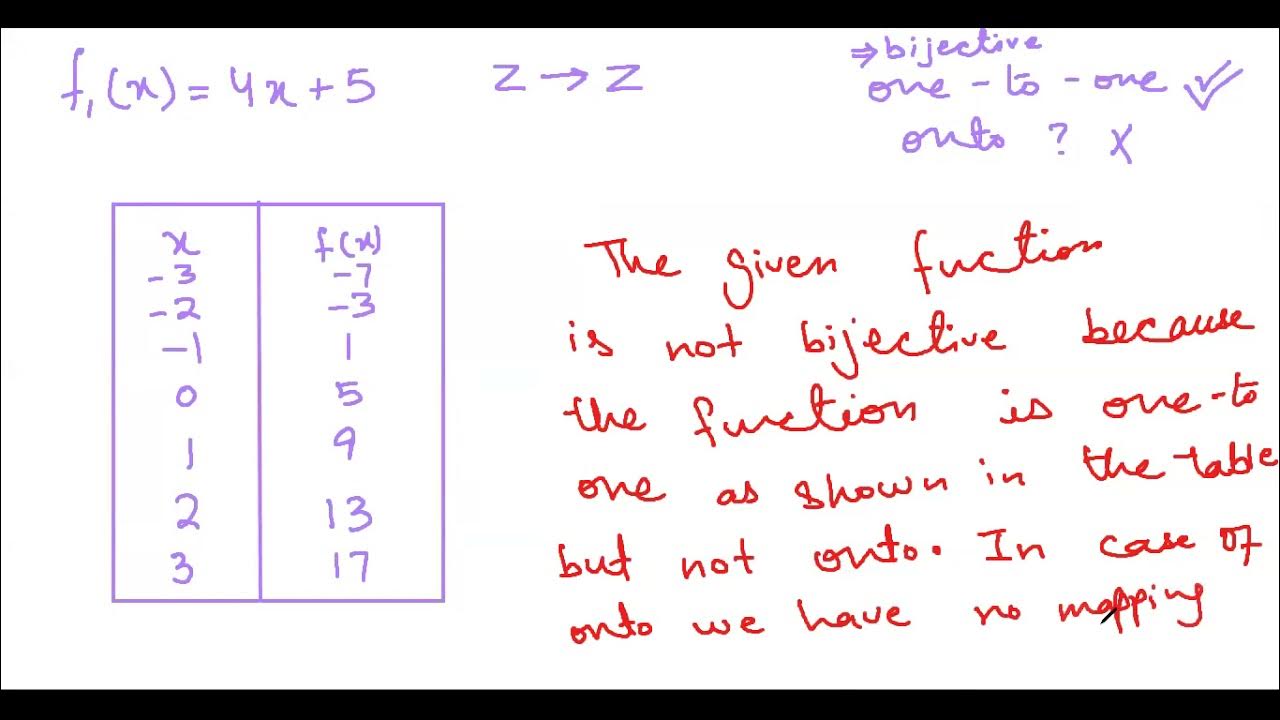 f₁(x) = 4x + 5
Z → Z
⇒ bijective
one-to-one ✓
onto ? X
x f(x)
-3 -7
-2 -3
-1 1
0 5
1 9
2 13
3 17
The given fuction
is not bijective because
the function is one-to
one as shown in the table
but not onto. In case of
onto we have no mapping